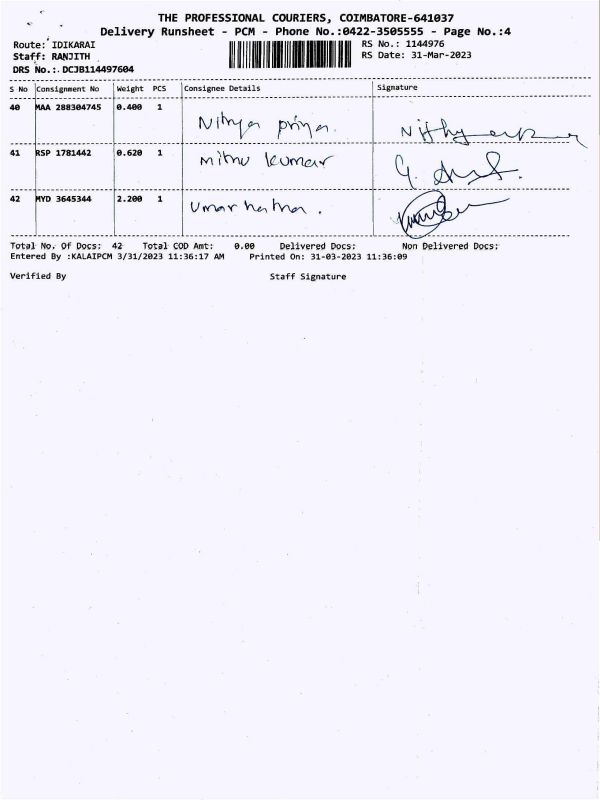 THE PROFESSIONAL COURIERS, COIMBATORE-641037
Delivery Runsheet - PCM - Phone No.:0422-3505555 - Page No.:4
Route: IDIKARAI RS No.: 1144976
Staff: RANJITH RS Date: 31-Mar-2023
DRS No.: DCJB114497604
S No Consignment No Weight PCS Consignee Details Signature
40 MAA 288304745 0.400 1 Nithya priya
41 RSP 1781442 0.620 1 mithu kumar
42 MYD 3645344 2.200 1
Total No. Of Docs: 42 Total COD Amt: 0.00 Delivered Docs: Non Delivered Docs:
Entered By :KALAIPCM 3/31/2023 11:36:17 AM Printed On: 31-03-2023 11:36:09
Verified By Staff Signature